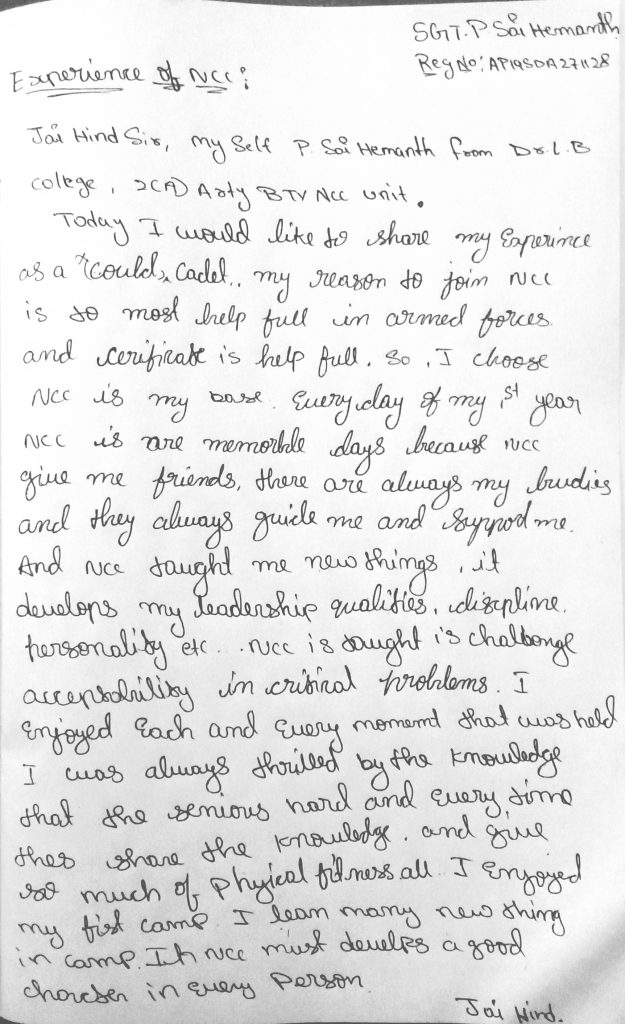 SGT. P Sai Hemanth
Reg No: AP19SDA271128
Experience of NCC:
Jai Hind Sir, my self P. Sai Hemanth from Dr. L. B
college, 2(A) Arty BTY NCC unit.
Today I would like to share my Experince
as a "could" Cadet.. my reason to join NCC
is to most help full in armed forces
and cerificate is help full. So, I choose
NCC is my base. Every day of my 1st year
NCC is are memorble days because NCC
give me friends, there are always my budies
and they always guide me and support me.
And NCC taught me new things, it
develops my leadership qualities, discipline.
personality etc.. NCC is taught is challenge
acceptability in critical problems. I
Enjoyed Each and Every moment that was held
I was always thrilled by the knowledge
that the seniors had and Every time
they share the knowledge. and give
so much of Phyical fitness all. I Enjoyed
my fist camp I learn many new thing
in camp. NCC must develps a good
in Every Person
Jai Hind.